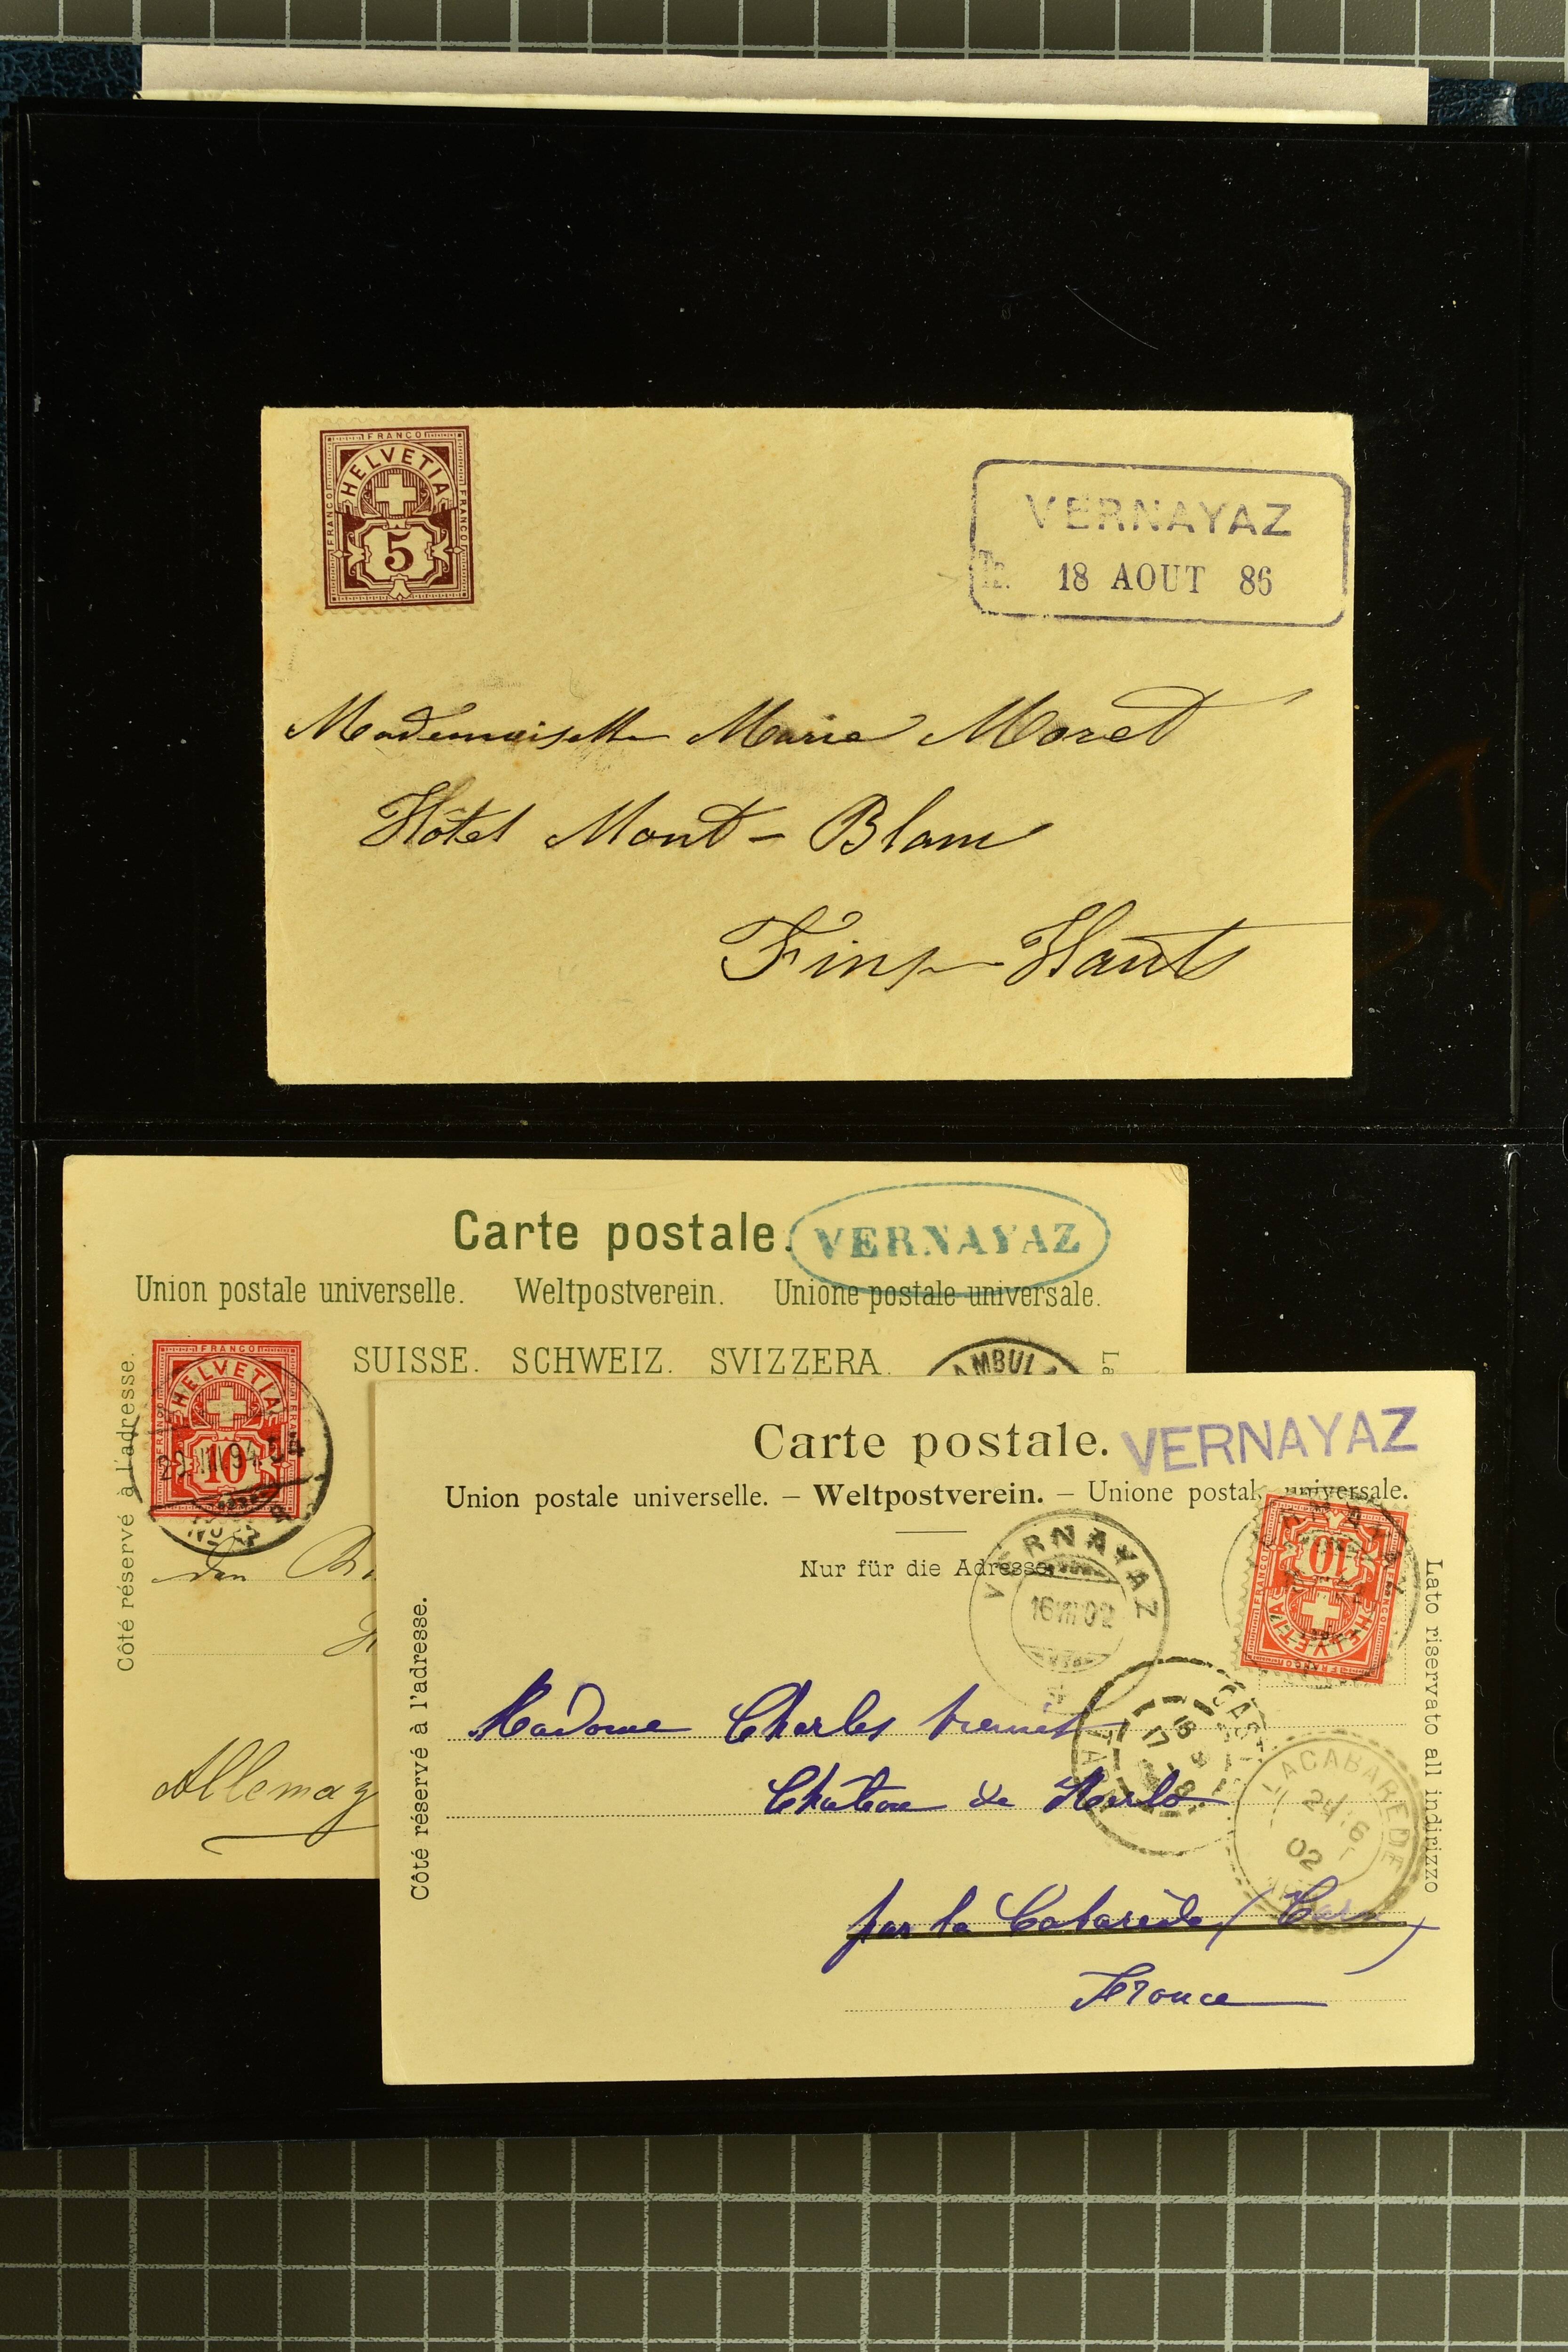 FRANCO
HELVETIA
FRANCO
FRANCO
5
VERNAYAZ
18 AOUT 86
Mademoiselle Marie Moret
Hôtel Mont-Blanc
Fins-Hauts
Carte postale.
VERNAYAZ
Union postale universelle. Weltpostverein. Unione postale universale.
SUISSE. SCHWEIZ. SVIZZERA.
AMBUL
La
Côté réservé à l'adresse.
FRANCO
HELVETIA
10
94
Allemag
Carte postale.
VERNAYAZ
Union postale universelle. – Weltpostverein. – Unione postal universale.
Nur für die Adresse
VERNAYAZ
16 VIII 02
FRANCO
HELVETIA
10
Côté réservé à l'adresse.
Lato riservato all indirizzo
Madame Charles
Château de
LACABARÈDE
02
par la Cabarède (Tarn)
France